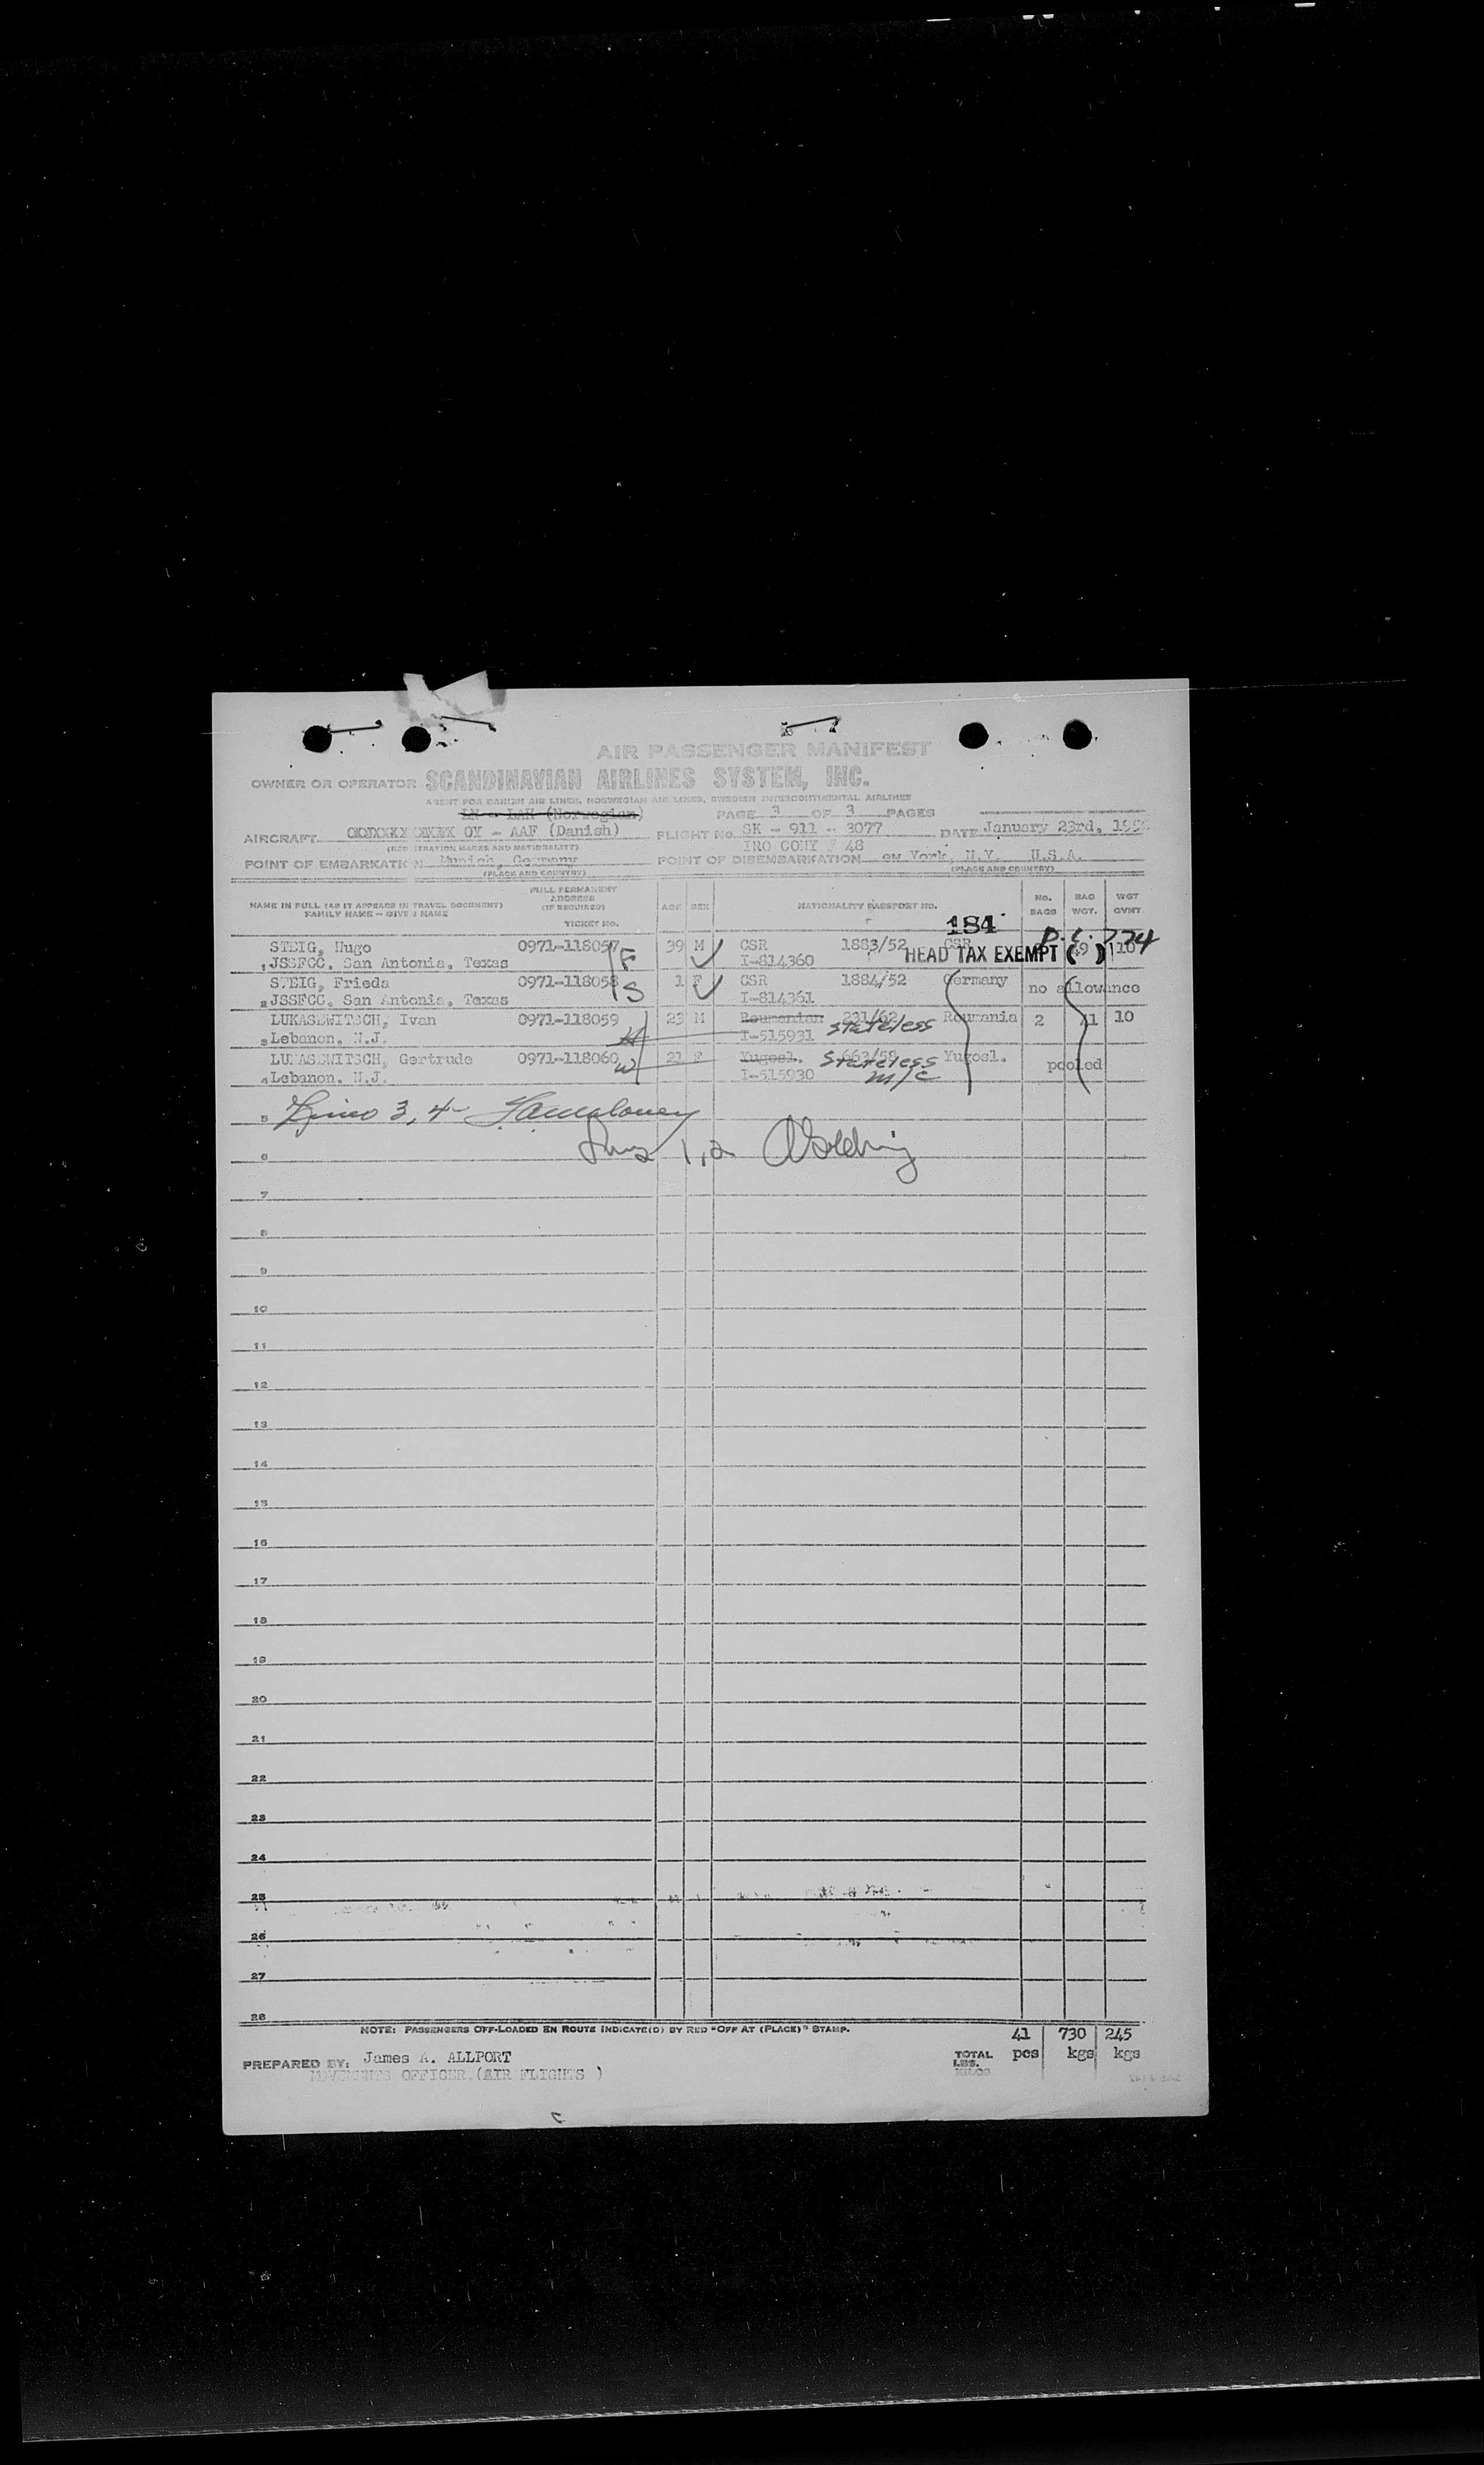 AIR PASSENGER MANIFEST
OWNER OR OPERATOR SCANDINAVIAN AIRLINES SYSTEM, INC.
AGENT FOR DANISH AIR LINES, NORWEGIAN AIR LINES, SWEDISH INTERCONTINENTAL AIRLINES
LN - LAH (Norwegian) PAGE 3 OF 3 PAGES
AIRCRAFT OY - AAF (Danish) FLIGHT No. SK - 911 - 3077 DATE January 23rd,
(REGISTRATION MARKS AND NATIONALITY) IRO CONY # 48
POINT OF EMBARKATION Munich, Germany POINT OF DISEMBARKATION ew York, N.Y. U.S.A.
(PLACE AND COUNTRY) (PLACE AND COUNTRY)
NAME IN FULL (AS IT APPEARS IN TRAVEL DOCUMENT) FAMILY NAME - GIVEN NAME
FULL PERMANENT ADDRESS (IF REQUIRED) TICKET No.
AGE SEX NATIONALITY PASSPORT NO. No. BAGS BAG WGT. WGT OVHT
184
HEAD TAX EXEMPT ( )
STEIG, Hugo 0971-118057 F 39 M CSR 1883/52 CSR 10
1 JSSFCC. San Antonia, Texas I-814360
STEIG, Frieda 0971-118058 S 1 F CSR 1884/52 Germany no allowance
2 JSSFCC. San Antonia, Texas I-814361
LUKASEWITSCH, Ivan 0971-118059 H 23 M Roumanian 231/62 stateless Roumania 2 10
3 Lebanon. N.J. I-515931
LUKASEWITSCH, Gertrude 0971-118060 W 21 F Yugosl. 663/58 Stateless Yugosl. pooled
4 Lebanon. N.J. I-515930 m/c
5 Lines 3, 4-
6 Lines 1,2
7
8
9
10
11
12
13
14
15
16
17
18
19
20
21
22
23
24
25
26
27
28
NOTE: PASSENGERS OFF-LOADED EN ROUTE INDICATE(D) BY RED "OFF AT (PLACE)" STAMP.
PREPARED BY: James A. ALLPORT
MOVEMENTS OFFICER (AIR FLIGHTS )
TOTAL LBS. KILOS 41 pcs 730 kgs 245 kgs